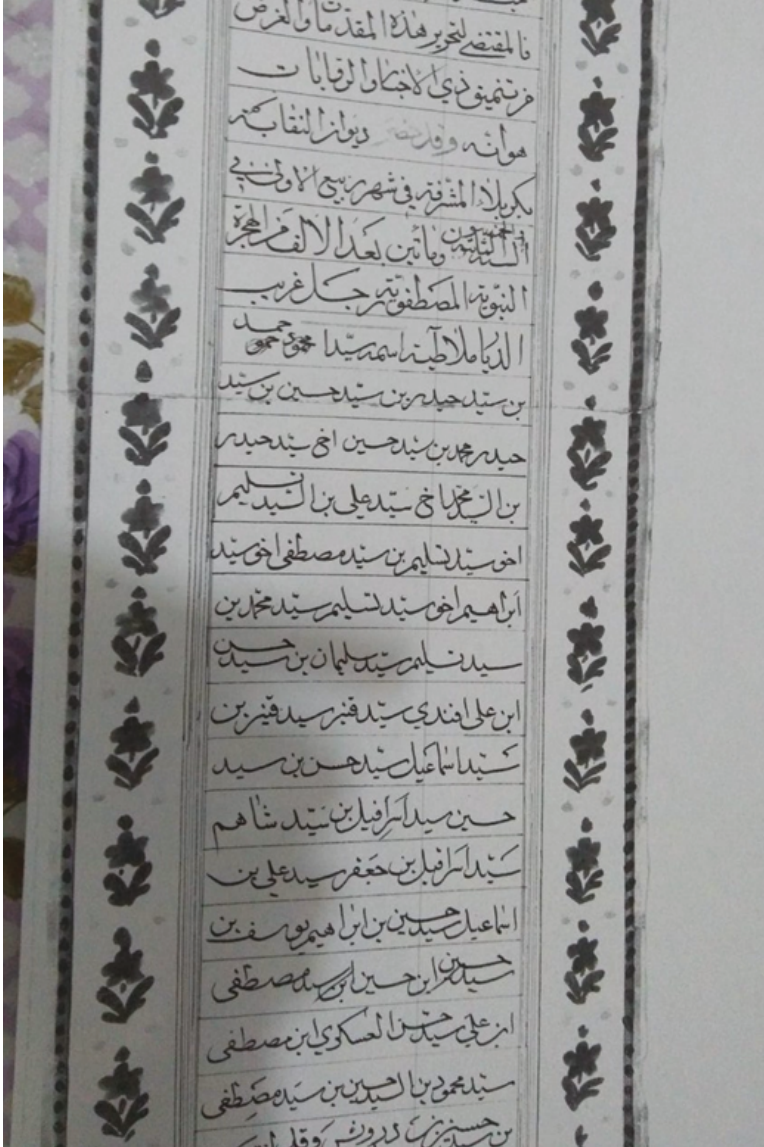 فالمقتضى لتحرير هذه المقدمات والغرض
من تنميق ذي الاختار والرقابات
هوانه وقد حضر ديوان النقابة
بكربلاء المشرفة في شهر ربيع الاولى في
السنة وماتين بعد الالف من الهجرة
النبوية المصطفوية رجل غريب
الديار ملاطية اسمه سيد محمود حمو
بن سيد حيدر بن سيد حسين بن سيد
حيدر محمد بن سيد حسين اخى سيد حيدر
بن السيد محمد اخ سيد على بن السيد تسليم
اخو سيد تسليم بن سيد مصطفى اخو سيد
ابراهيم اخو سيد تسليم سيد محمد بن
سيد تسليم سيد سليمان بن سيد حسن
ابن على افندي سيد قنبر سيد قنبر بن
سيد اسماعيل سيد حسن بن سيد
حسين سيد اسرافيل بن سيد شاهم
سيد اسرافيل بن جعفر سيد على بن
اسماعيل سيد حسين بن ابراهيم يوسف بن
سيد حسين ابن حسين ابن سيد مصطفى
ابن علي سيد حسن العسكري ابن مصطفى
سيد محمود بن السيد حسين بن سيد مصطفى
بن سيد درويش وقد